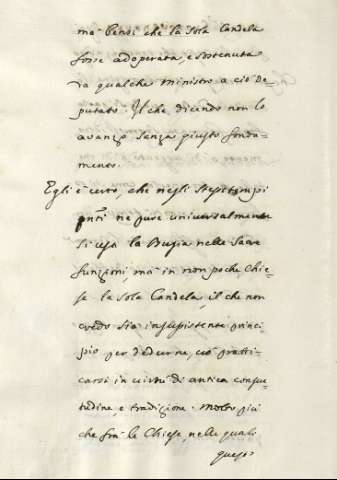 mà bensì che la sola Candela
fosse adoperata, e sostenuta
da qualche ministro a ciò de
putato. Il che dicendo non lo
avanzo senza giusto fonda-
mento.
Egli è certo, che negli stessi tempi
pnti ne pure universalmente
si usa la Bugia nelle Sacre
funzioni, mà in non poche Chie
se la sola Candela, il che non
credo sia insussistente princi
pio per dedurne, ciò pratti-
carsi in virtù di antica consue
tudine, e tradizione. Molto più
che frà le Chiese, nelle quali
questo